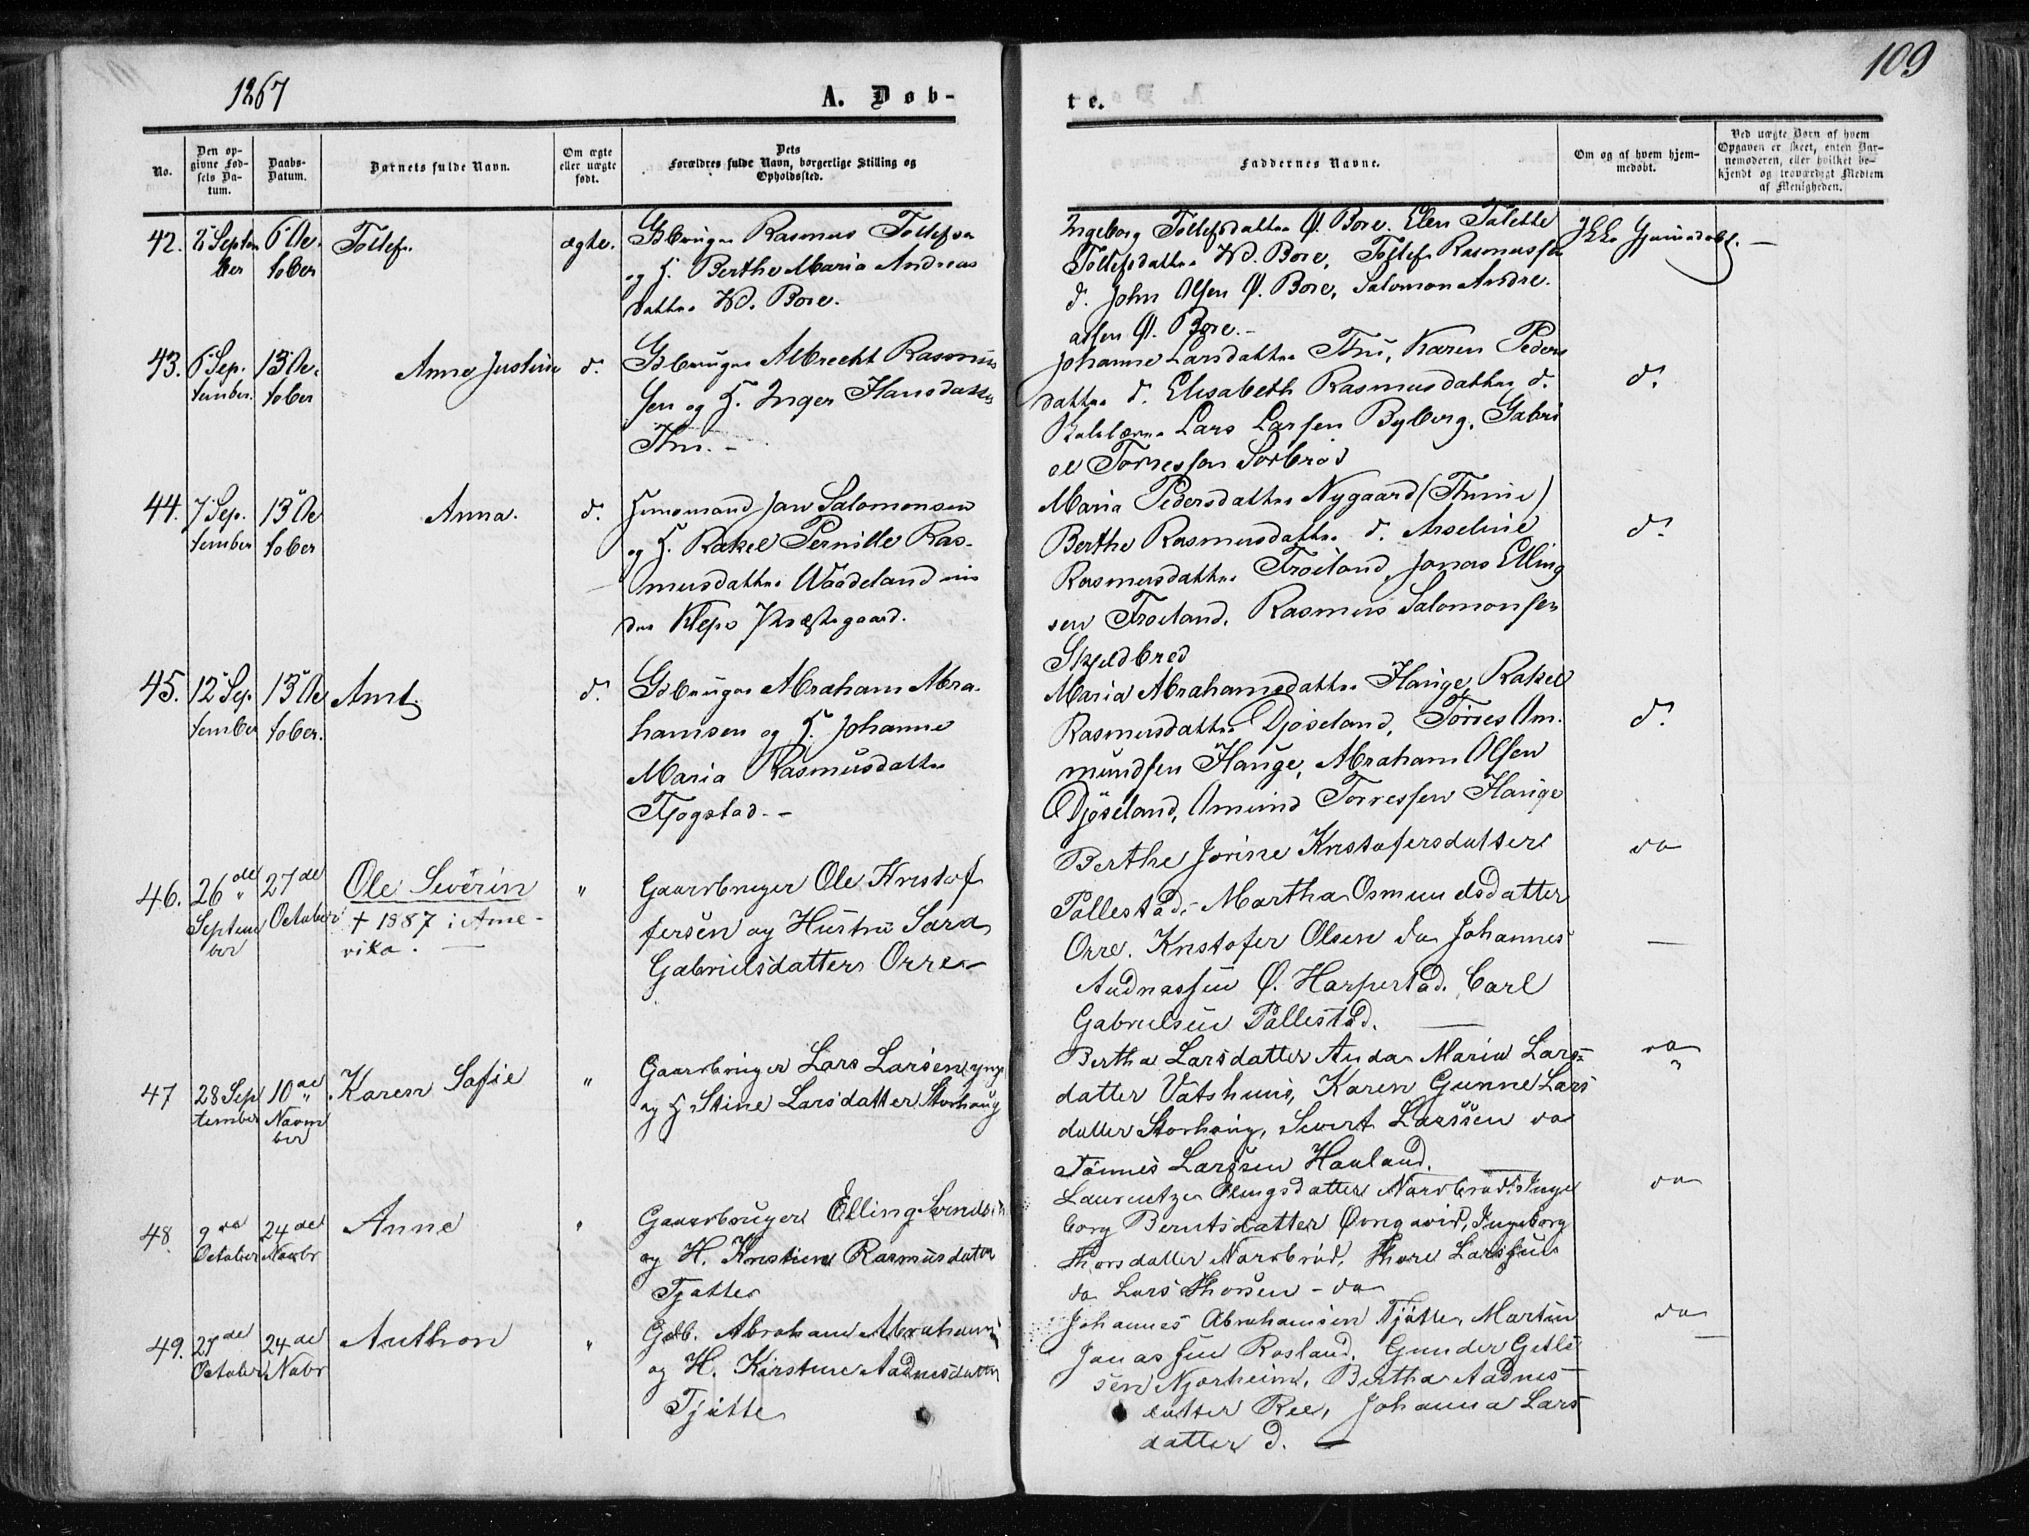 1867
109
A. Døb-
te.
No.
Den op-
givne Fød-
sels Da-
tum.
Daabs-
Datum.
Barnets fulde Navn.
Om ægte
eller uægte
født.
Dets
Forældres fulde Navn, borgerlige Stilling og
Opholdssted.
Faddernes Navne.
Om og af hvem hjem-
medøbt.
Ved uægte Børn af hvem
Opgaven er skeet, enten Bar-
nemoderen, eller hvilket be-
kjendt og troværdigt Medlem
af Menigheden.
42.
2 Septem
ber
6 Oc.
tober
Tollef.
ægte.
Gbruger Rasmus Tollefsen
og H. Berthe Maria Andreas
datter Nd. Bore.
Ingeborg Tollefsdatter Ø. Bore. Elen Talette
Tollefsdatter Nd. Bore, Tollef Rasmussen
d. John Olsen Ø. Bore, Salomon Andre.
assen Ø. Bore.-
Ikke Hjemmedøbt. —
43.
6 Sep.
tember.
13 Oc.
tober
Anne Justine
d.
Gbruger Albrecht Rasmus
sen og H. Inger Hansdatter
Thu.-
Johanne Larsdatter Thu, Karen Peders
datter d. Elisabeth Rasmusdatter d.
Skolelærer Lars Larsen Byberg, Gabri
el Tornessen Sørbrød
d.
44.
7 Sep.
tember
13 Oc
tober
Anna.
d.
Huusmand Jan Salomonsen
og H. Rakel Pernille Ras-
musdatter Waadeland un
der Klepo Præstegaard.
Maria Pedersdatter Nygaard (Thime)
Berthe Rasmusdatter d. Arseline
Rasmusdatter Frøiland, Jonas Elling
sen Frøiland. Rasmus Salomonsen
Skjeldbred
d.
45.
12 Sep.
tember
13 Oc
tober.
Arnt.
d.
Gbruger Abraham Abra.
hamsen og H. Johanne
Maria Rasmusdatter
Tjøgstad.-
Maria Abrahamsdatter Hauge, Rakel
Rasmusdatter Djøseland, Torres Am.
mundsen Hauge, Abraham Olsen
Djøseland, Amund Torressen Hauge
d.
46.
26 de
Septem
ber
27 de
October
Ole Severin
+ 1887 i Ame-
rika. —
"
Gaardbruger Ole Kristof
fersen og Hustru Sara
Gabrielsdatter Orre-
Berthe Jorine Kristofersdatter
Pollestad, Martha Osmundsdatter
Orre. Kristofer Olsen do Johannes
Audnassen Ø. Harpestad. Carl
Gabrielsen Pollestad. —
do
—
47
28 Sep
tember
10 de
Novem
ber
Karen Sofie
"
Gaardbruger Lars Larsen yngr
og H. Stine Larsdatter Storhaug
Bertha Larsdatter Auda Maria Lars
datter Vatshuus, Karen Gunne Lars
datter Storhaug, Sivert Larssen do
Tønnes Larssen Hauland.
do
"
48
9 de
October
24 de
Novbr
Anne
"
Gaardbruger Elling Svendsen
og H. Kristine Rasmusdatter
Tjøtte
Laurentze Olingsdatter Nordbrød, Inge
borg Berntsdatter Øvregaard, Ingeborg
Thorsdatter Nordbrød, Thore Larssen
do Lars Thorsen - do
do
49.
27 de
October
24 de
Novbr
Anthon
"
Gdb. Abraham Abrahams
og H. Kirstine Aadnesdatter
Tjøtte
Johannes Abrahamsen Tjøtte, Martin
Jonassen Rosland, Gunder Getls
sen Njærheim, Bertha Aadnes
datter Ree, Johanna Lars
datter d. —
do
—